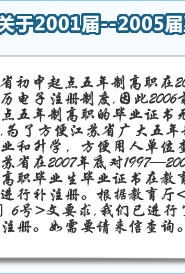 关于2001届--2005届
省初中起点五年制高职在20
历电子注册制度,因此2006前
点五年制高职的毕业证书无
,为了方便江苏省广大五年
业和升学,方便用人单位查
苏省在2007年底对1997—200
高职毕业生毕业证书在教育
进行补注册。根据教育厅<
6号>文要求,我们已进行了
注册。如需要请来信查询。